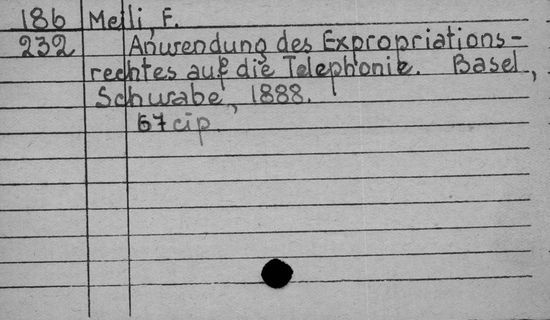 186 Meili, F.
232 Anwendung des Expropriations-
rechtes auf die Telephonie. Basel,
Schwabe, 1888.
67 cip